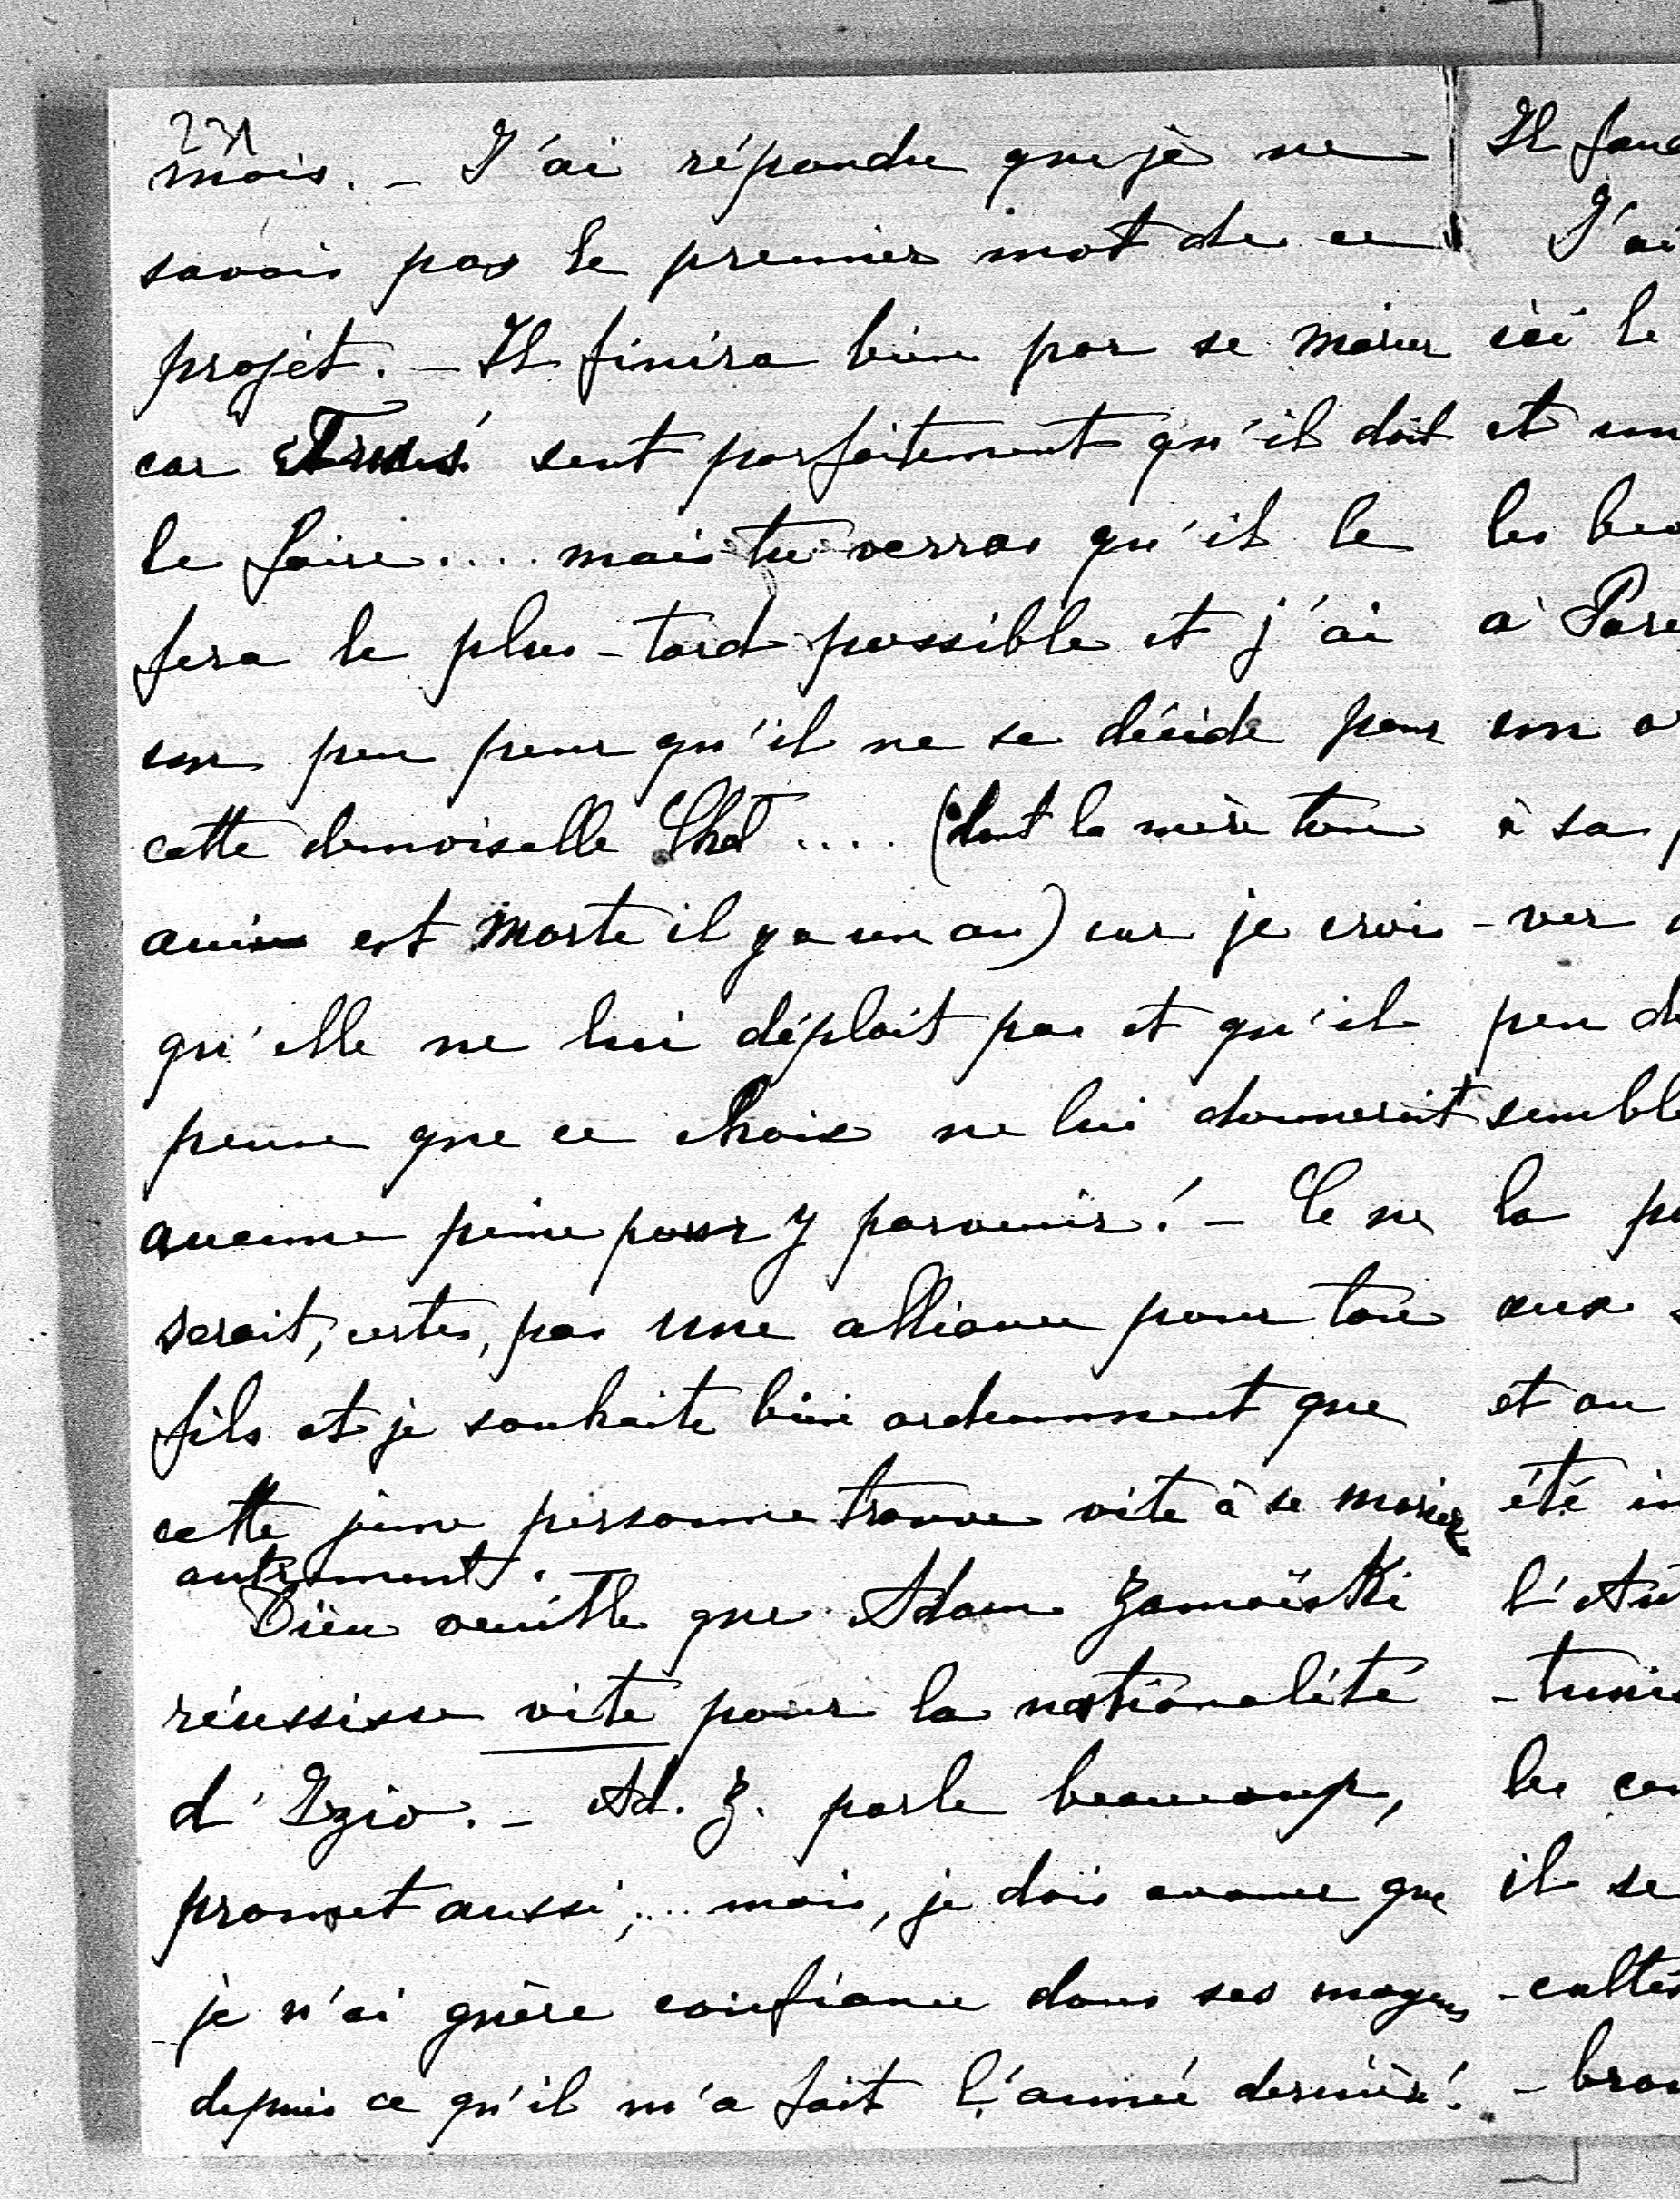 231
mois. - J'ai répondu que je ne
savais pas le premier mot de ce
projet. - Il finira bien par se marier
car sent parfaitement qu'il doit
le faire.... mais tu verras qu'il le
fera le plus-tard possible et j'ai
un peu peur qu'il ne se décide pour
cette demoiselle Chd .... (dont la mère
est morte il y a un an) car je crois
qu'elle ne lui déplait pas et qu'il
pense que ce choix ne lui donnerait
aucune peine pour y parvenir! - Ce ne
serait, certes, pas une alliance pour ton
fils et je souhaite bien ardemment que
cette jeune personne trouve vite à se marier
autrement.
Dieu veuille que Adam Zamoïski
réussisse vite pour la nationalité
d'Izio. - Ad. Z. parle beaucoup,
promet aussi,... mais, je dois avouer que
je n'ai guère confiance dans ses moyens
depuis ce qu'il m'a fait l'année dernière!
Il
J'ai
ici le
et
les
à
à sa
-ver
peu
semble
la
aux
et au
été
les
il se